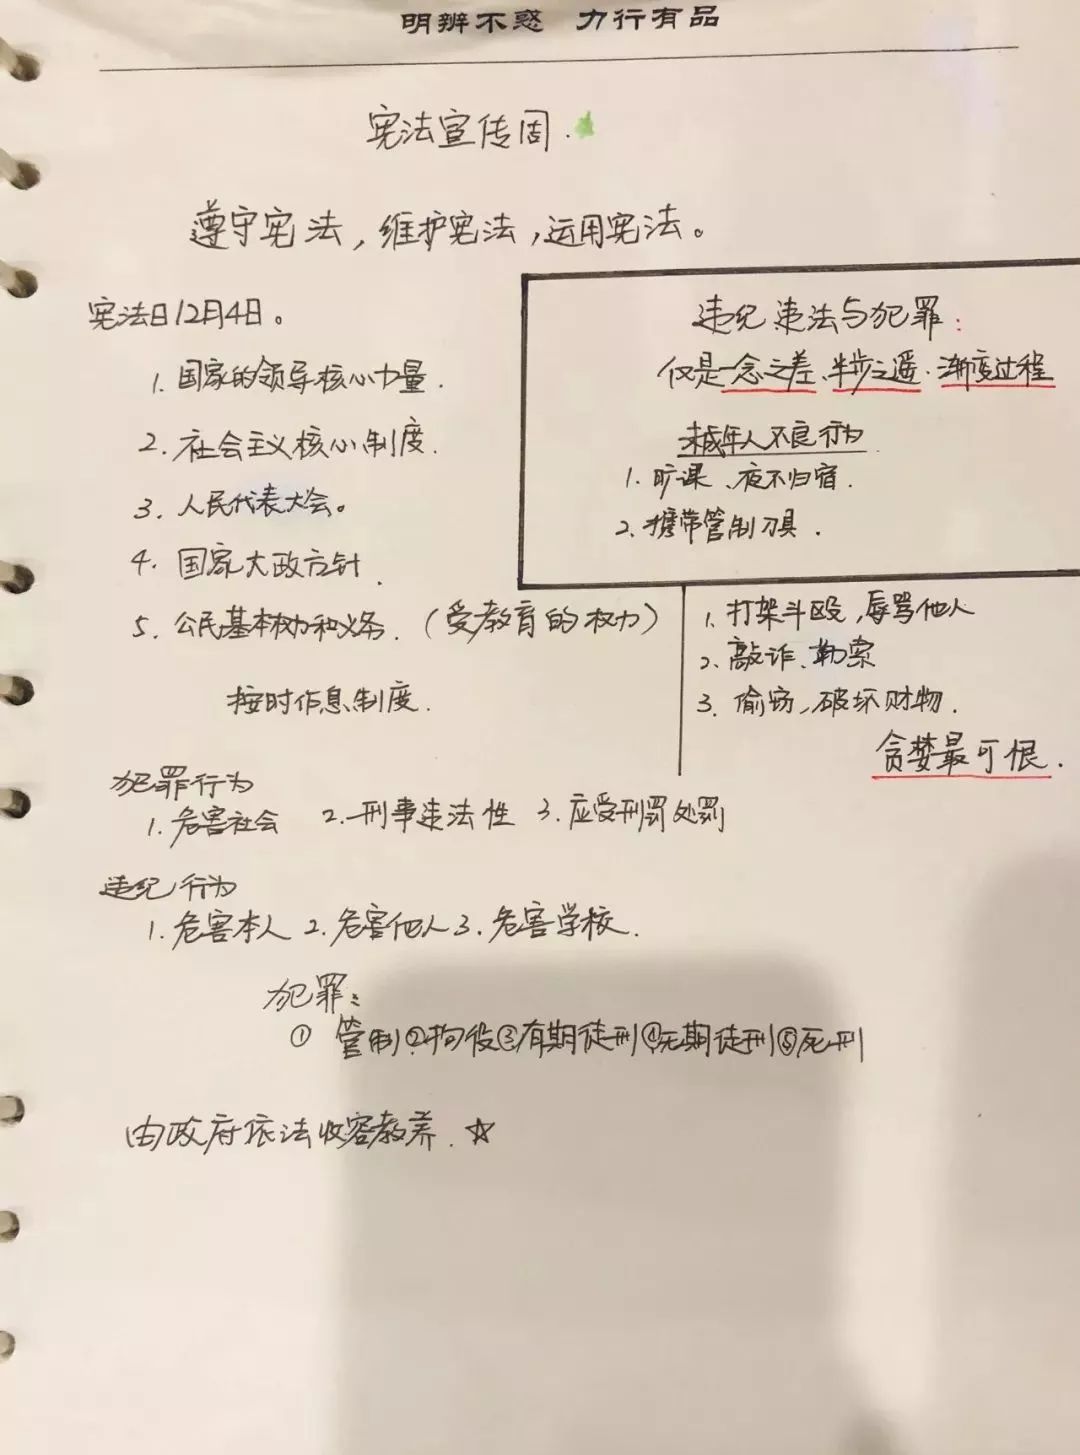 明辨不惑 力行有品
宪法宣传周.
遵守宪法，维护宪法，运用宪法。
宪法日12月4日。
1. 国家的领导核心力量.
2. 社会主义核心制度.
3. 人民代表大会。
4. 国家大政方针.
5. 公民基本权力和义务.（受教育的权力）
按时作息制度.
违纪 违法与犯罪:
仅是一念之差、半步之遥.渐变过程
未成年人不良行为
1. 旷课、夜不归宿.
2. 携带管制刀具.
1. 打架斗殴,辱骂他人
2. 敲诈、勒索
3. 偷窃,破坏财物.
贪婪最可恨.
犯罪行为
1. 危害社会 2. 刑事违法性 3. 应受刑罚处罚
违纪行为
1. 危害本人 2. 危害他人 3. 危害学校.
犯罪:
① 管制②拘役③有期徒刑④无期徒刑⑤死刑
由政府依法收容教养.☆